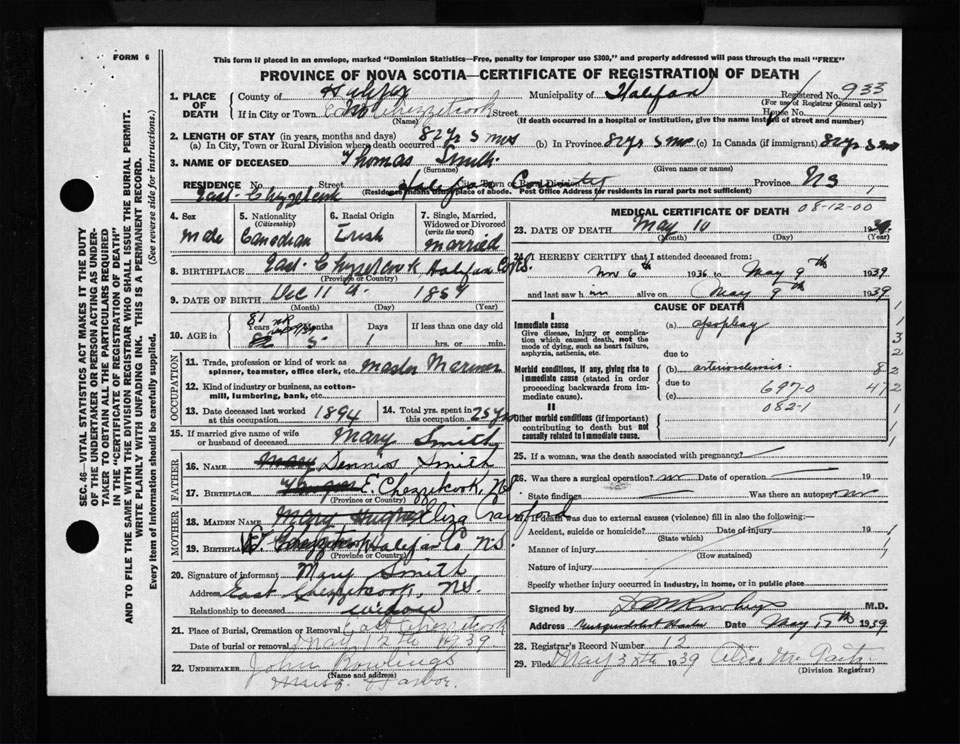 FORM 6
This form if placed in an envelope, marked "Dominion Statistics—Free, penalty for improper use $300," and properly addressed will pass through the mail "FREE"
PROVINCE OF NOVA SCOTIA—CERTIFICATE OF REGISTRATION OF DEATH
1. PLACE OF DEATH
County of Halifax Municipality of Halifax Registered No. 933
(For use of Registrar General only)
If in City or Town Chezzetcook Street House No.
(Name) (If death occurred in a hospital or institution, give the name instead of street and number)
2. LENGTH OF STAY (in years, months and days)
(a) In City, Town or Rural Division where death occurred 82 yrs 5 mos (b) In Province 82 yrs 5 mo (c) In Canada (if immigrant) 82 yrs 5 mo
3. NAME OF DECEASED Thomas Smith
(Surname) (Given name or names)
RESIDENCE No. Street Halifax County City, Town or Province NS
(Residence means usual place of abode. Post Office Address for residents in rural parts not sufficient)
East Chezzetcook
4. Sex Male
5. Nationality (Citizenship) Canadian
6. Racial Origin Irish
7. Single, Married, Widowed or Divorced (write the word) married
8. BIRTHPLACE East Chezzetcook Halifax Co NS.
(Province or Country)
9. DATE OF BIRTH Dec 11th 1857
(Month) (Day) (Year)
10. AGE in
Years Months Days If less than one day old
81 5 1 hrs. or min.
OCCUPATION
11. Trade, profession or kind of work as spinner, teamster, office clerk, etc. Master Mariner
12. Kind of industry or business, as cotton-mill, lumbering, bank, etc.
13. Date deceased last worked at this occupation 1894
14. Total yrs. spent in this occupation 25 yrs
15. If married give name of wife or husband of deceased Mary Smith
FATHER
16. NAME Mary Dennis Smith
17. BIRTHPLACE E. Chezzetcook, NS
(Province or Country)
MOTHER
18. MAIDEN NAME Mary Hughes Eliza Crawford
19. BIRTHPLACE Halifax Co, NS.
(Province or Country)
20. Signature of informant Mary Smith
Address East Chezzetcook, NS.
Relationship to deceased widow
21. Place of Burial, Cremation or Removal East Chezzetcook
Date of burial or removal May 12th 1939
22. UNDERTAKER John Rowlings
(Name and address)
Musq. Harbor.
MEDICAL CERTIFICATE OF DEATH 08-12-00
23. DATE OF DEATH May 10 1939
(Month) (Day) (Year)
24. I HEREBY CERTIFY that I attended deceased from:
Nov 6th 1936 to May 9th 1939
and last saw him alive on May 9th 1939
CAUSE OF DEATH
I
Immediate cause
Give disease, injury or complication which caused death, not the mode of dying, such as heart failure, asphyxia, asthenia, etc.
(a) apoplexy
due to
Morbid conditions, if any, giving rise to immediate cause (stated in order proceeding backwards from immediate cause).
(b) arteriosclerosis
due to
(c) 697-0
082-1
II
Other morbid conditions (if important) contributing to death but not causally related to immediate cause.
1
1
3
2
82
472
1
1
1
25. If a woman, was the death associated with pregnancy?
26. Was there a surgical operation? no Date of operation 19
State findings Was there an autopsy? no
27. If death was due to external causes (violence) fill in also the following:—
Accident, suicide or homicide? Date of injury 19
(State which)
Manner of injury
(How sustained)
Nature of injury
Specify whether injury occurred in industry, in home, or in public place
Signed by Rowlings M.D.
Address Musquodoboit Harbor Date May 17th 1939
28. Registrar's Record Number 12
29. Filed May 1939 Alice
(Division Registrar)
SEC. 46—VITAL STATISTICS ACT MAKES IT THE DUTY
OF THE UNDERTAKER OR PERSON ACTING AS UNDER-
TAKER TO OBTAIN ALL THE PARTICULARS REQUIRED
IN THE "CERTIFICATE OF REGISTRATION OF DEATH"
AND TO FILE THE SAME WITH THE DIVISION REGISTRAR WHO SHALL ISSUE THE BURIAL PERMIT.
WRITE PLAINLY WITH UNFADING INK. THIS IS A PERMANENT RECORD.
Every item of information should be carefully supplied. (See reverse side for instructions.)